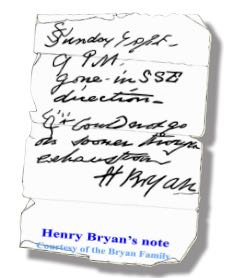 Sunday
9 P.M.
gone in SSE
direction.
could not go
on sooner through
exhaustion
H Bryan
Henry Bryan's note
Courtesy of the Bryan Family